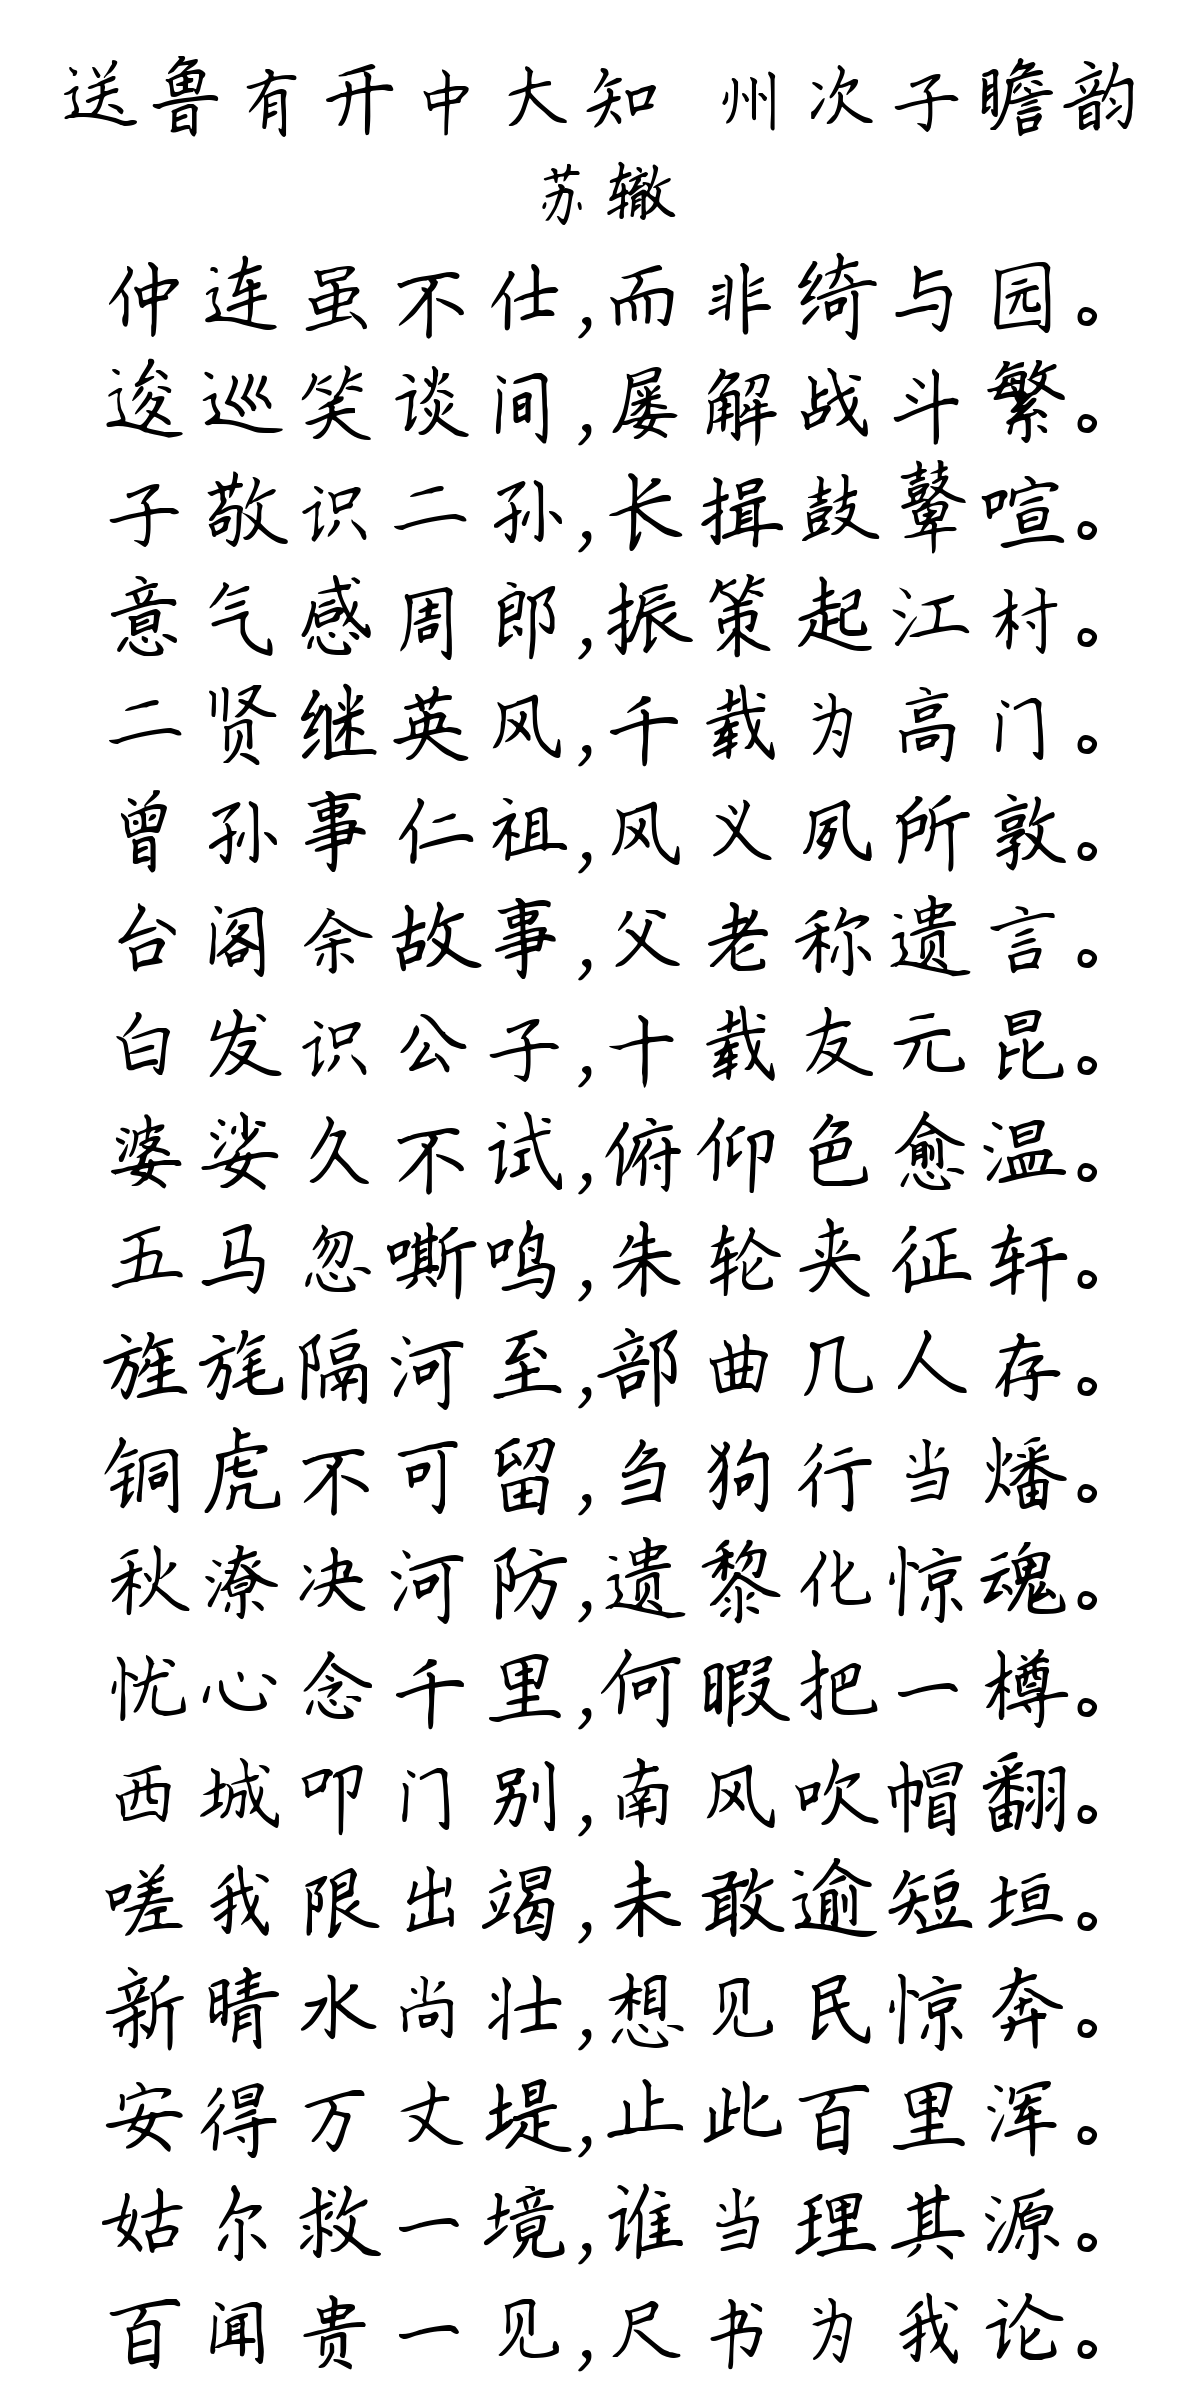 送鲁有开中大知 州次子瞻韵
苏辙
仲连虽不仕,而非绮与园。
逡巡笑谈间,屡解战斗繁。
子敬识二孙,长揖鼓鼙喧。
意气感周郎,振策起江村。
二贤继英风,千载为高门。
曾孙事仁祖,风义夙所敦。
台阁余故事,父老称遗言。
白发识公子,十载友元昆。
婆娑久不试,俯仰色愈温。
五马忽嘶鸣,朱轮夹征轩。
旌旄隔河至,部曲几人存。
铜虎不可留,刍狗行当燔。
秋潦决河防,遗黎化惊魂。
忧心念千里,何暇把一樽。
西城叩门别,南风吹帽翻。
嗟我限出竭,未敢逾短垣。
新晴水尚壮,想见民惊奔。
安得万丈堤,止此百里浑。
姑尔救一境,谁当理其源。
百闻贵一见,尺书为我论。